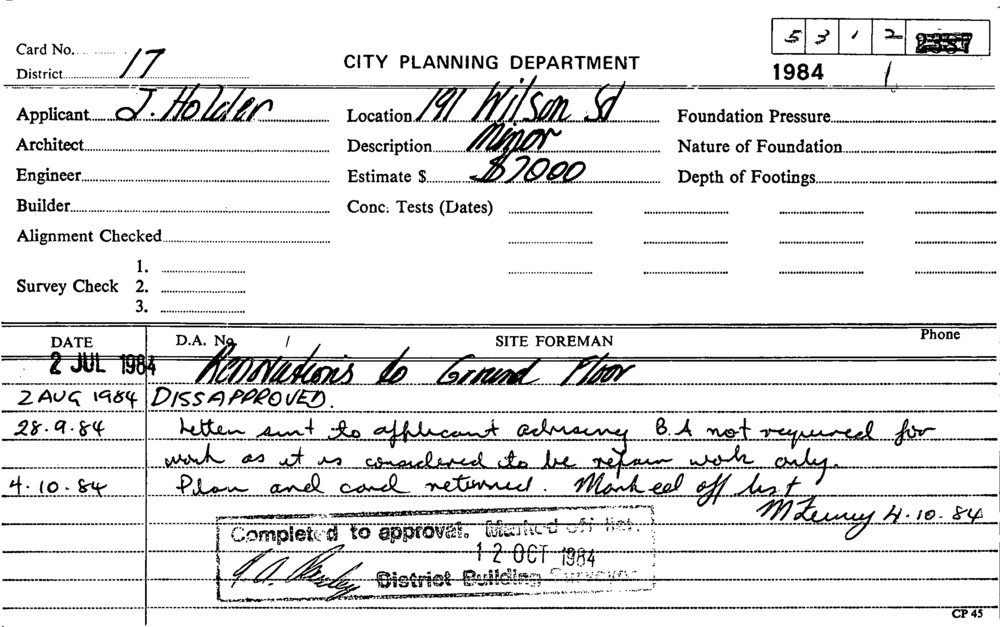 5 3 1 2
Card No.
District 17
CITY PLANNING DEPARTMENT
1984 1
Applicant J. Holder
Location 191 Wilson Sd
Foundation Pressure
Architect
Description Minor
Nature of Foundation
Engineer
Estimate $ $7000
Depth of Footings
Builder
Conc. Tests (Dates)
Alignment Checked
Survey Check
1.
2.
3.
DATE D.A. No. / SITE FOREMAN Phone
2 JUL 1984 Renovations to Ground Floor
2 AUG 1984 DISSAPPROVED.
28.9.84 Letter sent to applicant advising B.A not required for
work as it is considered to be repair work only.
4.10.84 Plan and card returned. Marked off list
4.10.84
Completed to approval. Marked off list.
12 OCT 1984
District Building Surveyor
CP 45